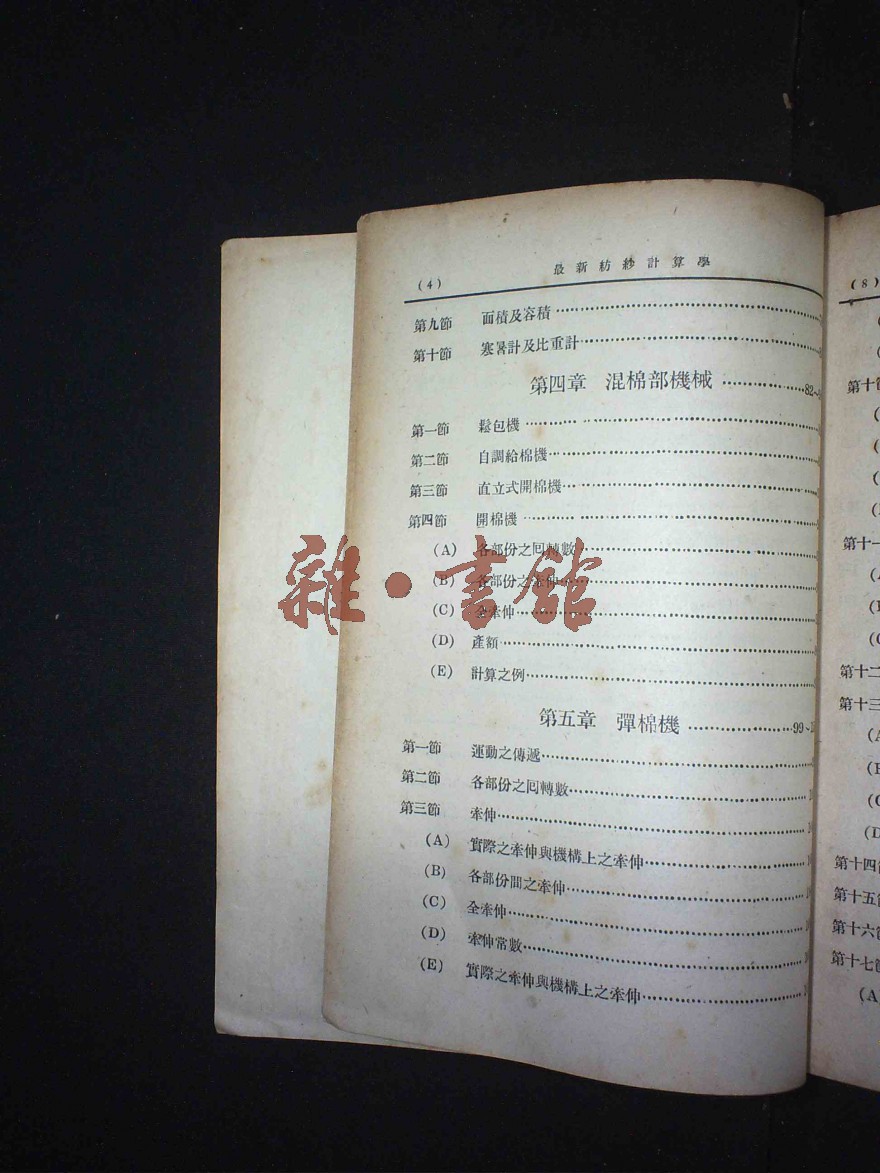 (4) 最新紡紗計算學
第九節 面積及容積
第十節 寒暑計及比重計
第四章 混棉部機械 82~
第一節 鬆包機
第二節 自調給棉機
第三節 直立式開棉機
第四節 開棉機
(A) 各部份之回轉數
(B) 各部份之牽伸
(C) 全牽伸
(D) 產額
(E) 計算之例
第五章 彈棉機 99~
第一節 運動之傳遞
第二節 各部份之回轉數
第三節 牽伸
(A) 實際之牽伸與機構上之牽伸
(B) 各部份間之牽伸
(C) 全牽伸
(D) 牽伸常數
(E) 實際之牽伸與機構上之牽伸
雜·書館
(8)
第十
第十一
第十二
第十三
第十四
第十五
第十六
第十七
(A